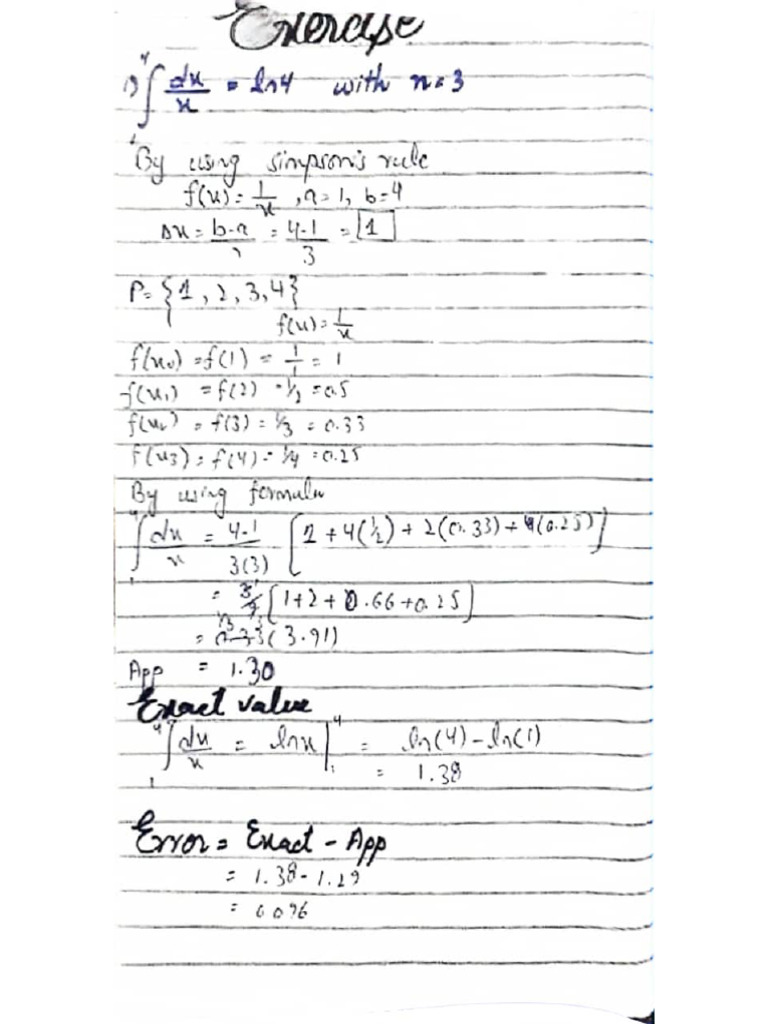 Exercise
1) ∫₁⁴ dx/x = ln4 with n=3
By using simpson's rule
f(x) = 1/x , a=1, b=4
Δx = b-a/n = 4-1/3 = 1
P = {1, 2, 3, 4}
f(x) = 1/x
f(x₀) = f(1) = 1/1 = 1
f(x₁) = f(2) = 1/2 = 0.5
f(x₂) = f(3) = 1/3 = 0.33
f(x₃) = f(4) = 1/4 = 0.25
By using formula
∫₁⁴ dx/x = 4-1/3(3) [1 + 4(1/2) + 2(0.33) + (0.25)]
= [1+2+0.66+0.25]
= (3.91)
App = 1.30
Exact value
∫₁⁴ dx/x = lnx|₁⁴ = ln(4) - ln(1)
= 1.38
Error = Exact - App
= 1.38 - 1.29
= 0.096